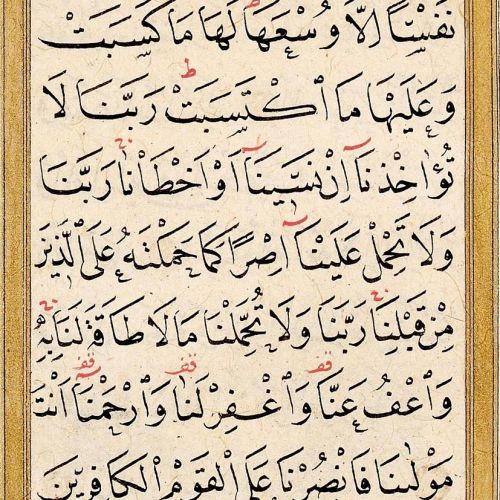 نَفْسًا اِلَّا وُسْعَهَا لَهَا مَا كَسَبَتْ
وَعَلَيْهَا مَا اكْتَسَبَتْ رَبَّنَا لَا
تُؤَاخِذْنَا اِنْ نَسِينَا اَوْ اَخْطَاْنَا رَبَّنَا
وَلَا تَحْمِلْ عَلَيْنَا اِصْرًا كَمَا حَمَلْتَهُ عَلَى الَّذِينَ
مِنْ قَبْلِنَا رَبَّنَا وَلَا تُحَمِّلْنَا مَا لَا طَاقَةَ لَنَا بِهِ
وَاعْفُ عَنَّا وَاغْفِرْ لَنَا وَارْحَمْنَا اَنْتَ
مَوْلٰينَا فَانْصُرْنَا عَلَى الْقَوْمِ الْكَافِرِينَ